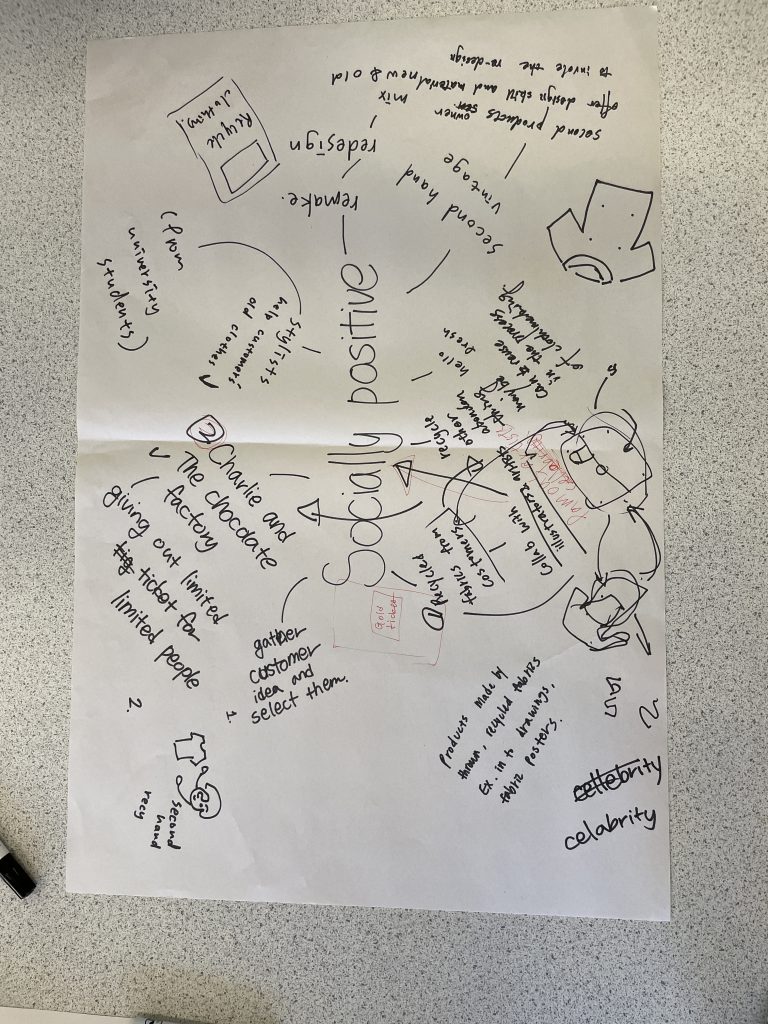 Socially positive
remake.
redesign
mix
new & old
second hand
vintage
second products
owner
offer design skill and material
to invole the re-design
Recycle
clothing.
stylists
help customers'
old clothes.
(from
university
students)
hello
fresh
recycle
other
abandon
thing
maybe
can to reuse
in the process
of clothmaking
Collab with
illustrators & artists
famous
artists
celebrity
① Recycled
fabrics from
costomers
Gold
ticket
② Charlie and
The chocolate
factory
giving out limited
ticket for
limited people
gather
customer
idea and
select them.
1.
2.
second
hand
recy
Products made by
thrown, recycled fabrics
Ex. in to drawings,
fabric posters.
celebrity
celabrity